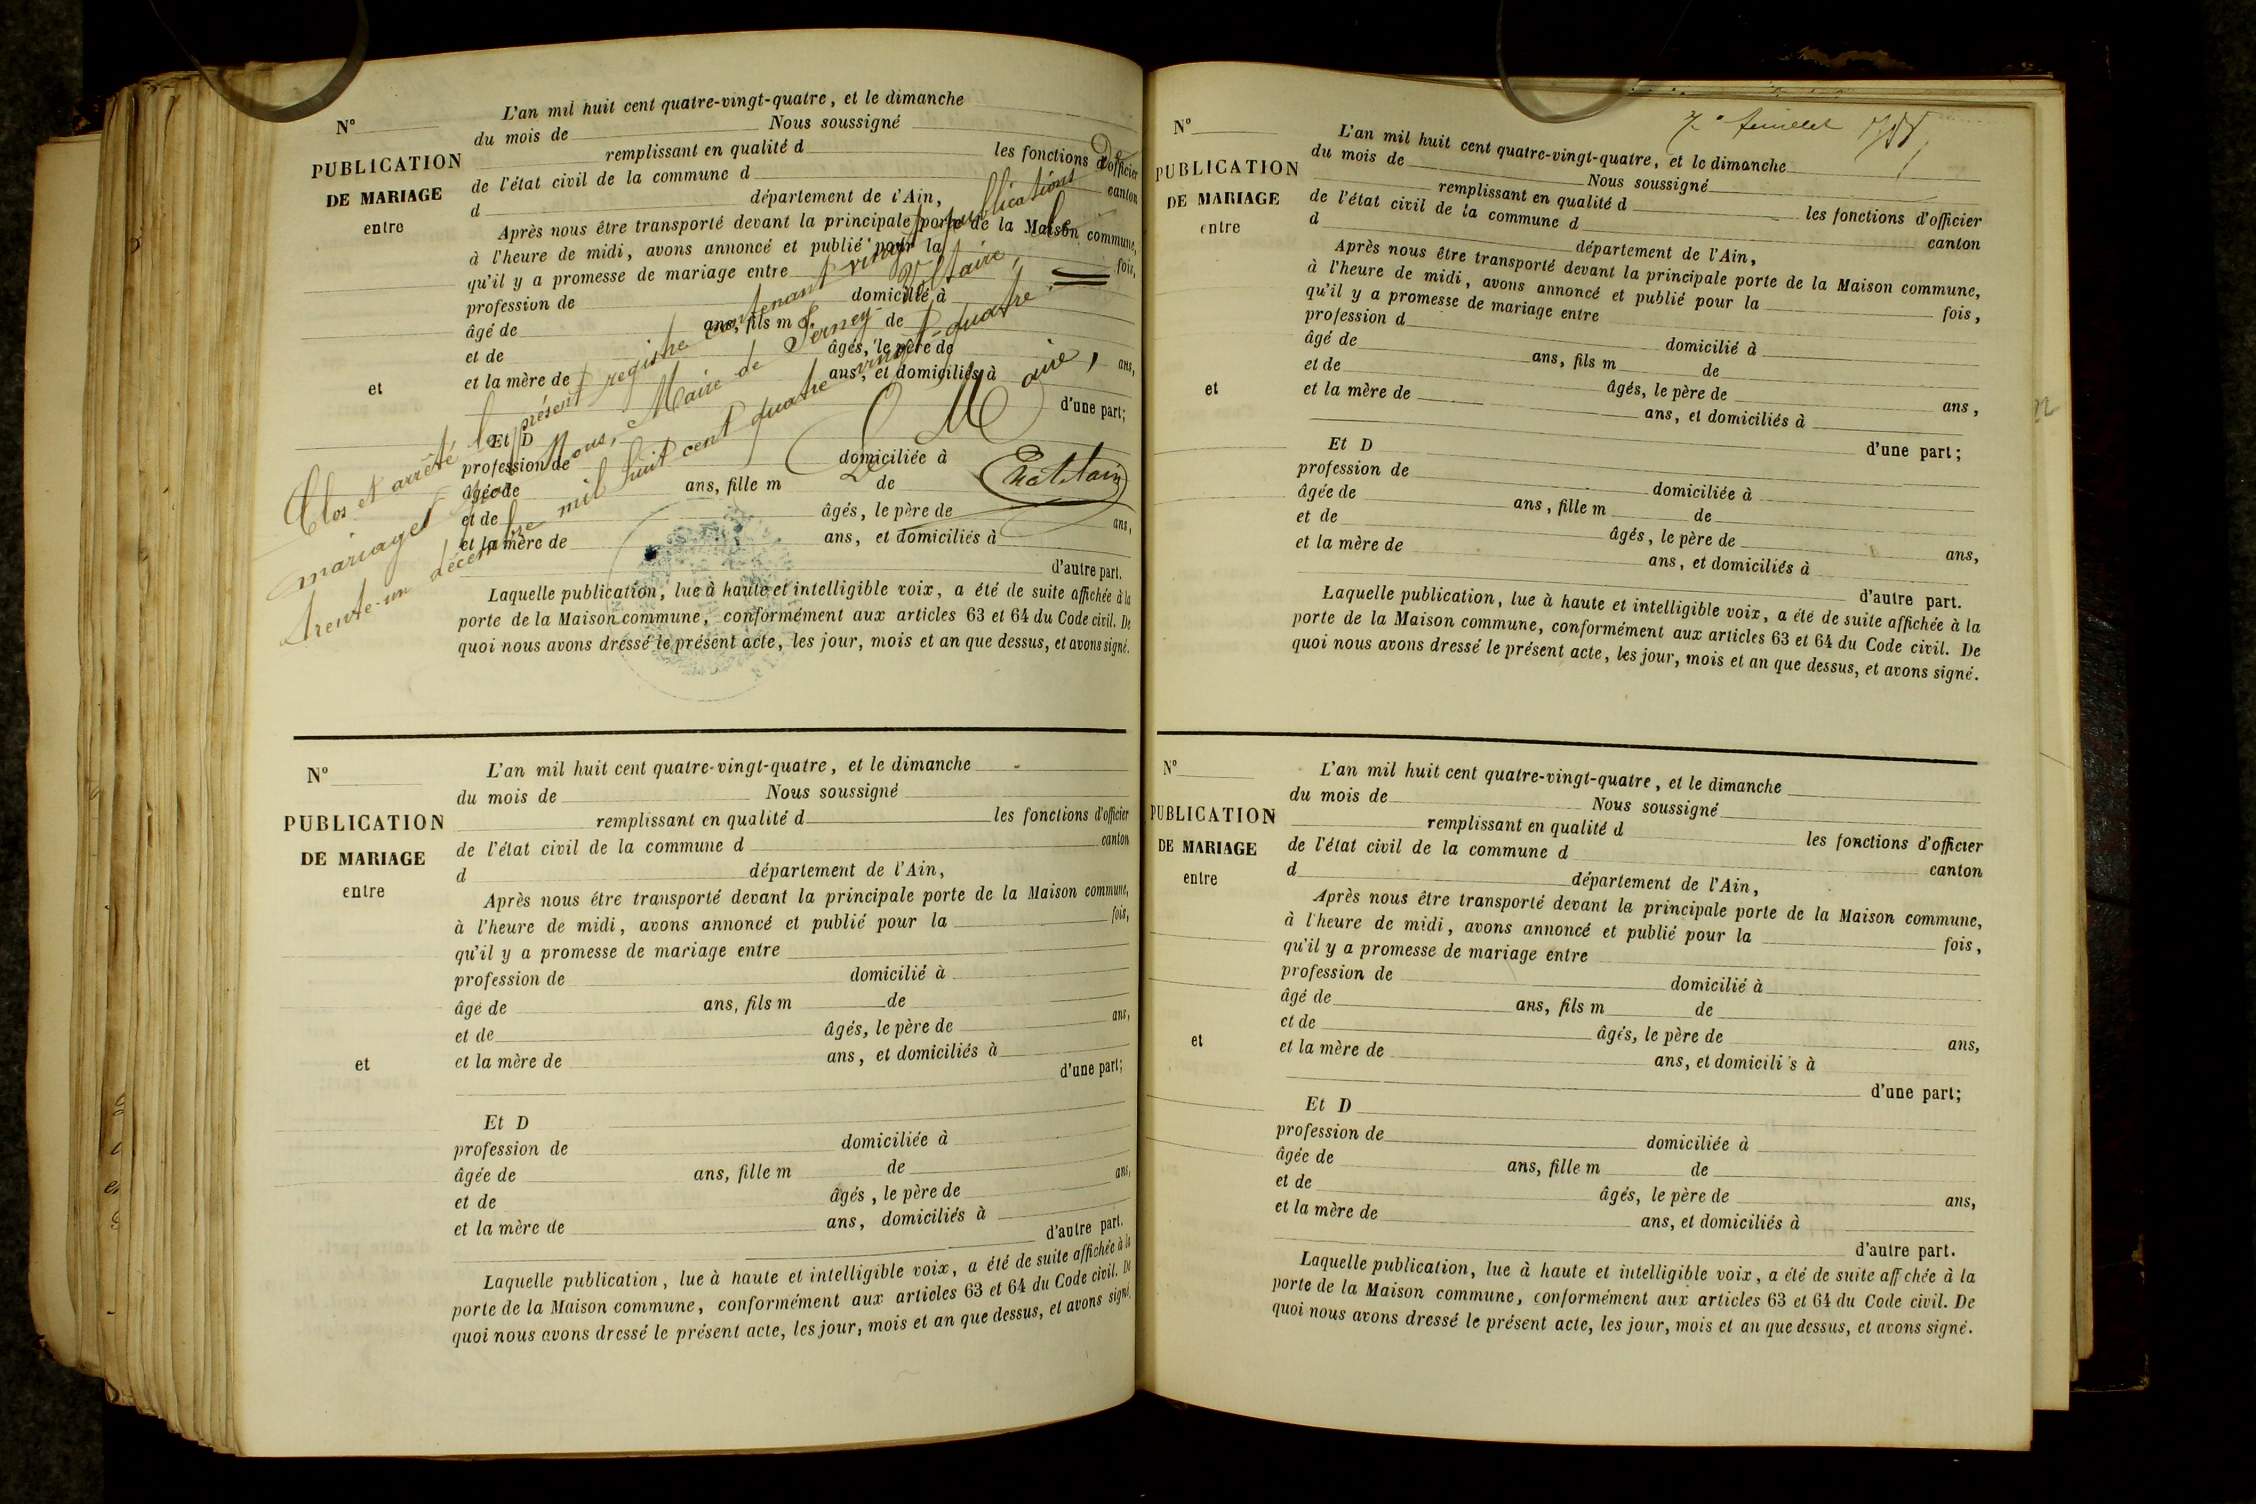 N°
PUBLICATION
DE MARIAGE
entre
et
L'an mil huit cent quatre-vingt-quatre, et le dimanche
du mois de Nous soussigné
remplissant en qualité d les fonctions d'officier
de l'état civil de la commune d canton
d département de l'Ain,
Après nous être transporté devant la principale porte de la Maison commune,
à l'heure de midi, avons annoncé et publié pour la fois,
qu'il y a promesse de mariage entre
profession de domicilié à
âgé de ans, fils m de
et de âgés, le père de ans,
et la mère de ans, et domiciliés à
d'une part;
Et D
profession de domiciliée à
âgée de ans, fille m de
et de âgés, le père de ans,
et la mère de ans, et domiciliés à
d'autre part.
Laquelle publication, lue à haute et intelligible voix, a été de suite affichée à la
porte de la Maison commune, conformément aux articles 63 et 64 du Code civil. De
quoi nous avons dressé le présent acte, les jour, mois et an que dessus, et avons signé.
Clos et arrêté le présent registre contenant vingt publications De
mariages par Nous, Maire de Ferney-Voltaire, le
trente-un décembre mil huit cent quatre vingt-quatre.
Le Maire,
N°
PUBLICATION
DE MARIAGE
entre
et
L'an mil huit cent quatre-vingt-quatre, et le dimanche
du mois de Nous soussigné
remplissant en qualité d les fonctions d'officier
de l'état civil de la commune d canton
d département de l'Ain,
Après nous être transporté devant la principale porte de la Maison commune,
à l'heure de midi, avons annoncé et publié pour la fois,
qu'il y a promesse de mariage entre
profession de domicilié à
âgé de ans, fils m de
et de âgés, le père de ans,
et la mère de ans, et domiciliés à
d'une part;
Et D
profession de domiciliée à
âgée de ans, fille m de
et de âgés, le père de ans,
et la mère de ans, domiciliés à
d'autre part.
Laquelle publication, lue à haute et intelligible voix, a été de suite affichée à la
porte de la Maison commune, conformément aux articles 63 et 64 du Code civil. De
quoi nous avons dressé le présent acte, les jour, mois et an que dessus, et avons signé.
feuillet
N°
PUBLICATION
DE MARIAGE
entre
et
L'an mil huit cent quatre-vingt-quatre, et le dimanche
du mois de Nous soussigné
remplissant en qualité d les fonctions d'officier
de l'état civil de la commune d canton
d département de l'Ain,
Après nous être transporté devant la principale porte de la Maison commune,
à l'heure de midi, avons annoncé et publié pour la fois,
qu'il y a promesse de mariage entre
profession d domicilié à
âgé de ans, fils m de
et de âgés, le père de ans,
et la mère de ans, et domiciliés à
d'une part;
Et D
profession de domiciliée à
âgée de ans, fille m de
et de âgés, le père de ans,
et la mère de ans, et domiciliés à
d'autre part.
Laquelle publication, lue à haute et intelligible voix, a été de suite affichée à la
porte de la Maison commune, conformément aux articles 63 et 64 du Code civil. De
quoi nous avons dressé le présent acte, les jour, mois et an que dessus, et avons signé.
N°
PUBLICATION
DE MARIAGE
entre
et
L'an mil huit cent quatre-vingt-quatre, et le dimanche
du mois de Nous soussigné
remplissant en qualité d les fonctions d'officier
de l'état civil de la commune d canton
d département de l'Ain,
Après nous être transporté devant la principale porte de la Maison commune,
à l'heure de midi, avons annoncé et publié pour la fois,
qu'il y a promesse de mariage entre
profession de domicilié à
âgé de ans, fils m de
et de âgés, le père de ans,
et la mère de ans, et domicili s à
d'une part;
Et D
profession de domiciliée à
âgée de ans, fille m de
et de âgés, le père de ans,
et la mère de ans, et domiciliés à
d'autre part.
Laquelle publication, lue à haute et intelligible voix, a été de suite aff chée à la
porte de la Maison commune, conformément aux articles 63 et 64 du Code civil. De
quoi nous avons dressé le présent acte, les jour, mois et an que dessus, et avons signé.